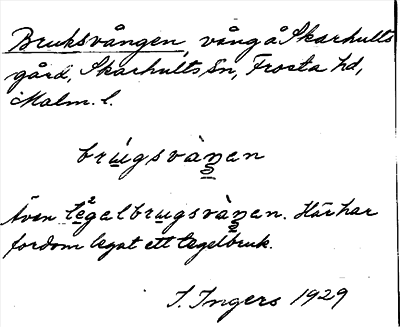 Bruksvången, vång å Skarhults
gård, Skarhults sn, Frosta hd,
Malm. l.
brúgsvàŋ̠en
Även te̠²gelbru̠gsvàŋ̠en. Här har
fordom legat ett tegelbruk.
I. Ingers 1929